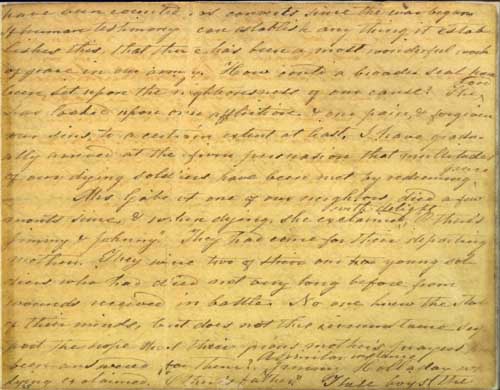 have been counted as converts since the war began
If human testimony can establish any thing, it estab
lishes this, that there has been a most wonderful work
of grace in our army. How could a broader seal have
been set upon the righteousness of our cause? The Lord
has looked upon our affliction & our pain, & forgiven
our sins, to a certain extent at least. I have gradu
ally arrived at the firm persuasion that multitudes
of our dying soldiers have been met by redeeming grace
Mrs. one of our neighbors, died a few
months since, & when dying, she exclaimed, with delight, "O there's
Jimmy & Johnny". They had come for their departing
mother. They were two of three our young sol
diers who had died not very long before from
wounds received in battle. No one knew the state
of their minds, but does not this circumstance sup
port the hope that their pious mother's prayers
been answered for them? A similar incident
dying exclaimed, "O there's father"